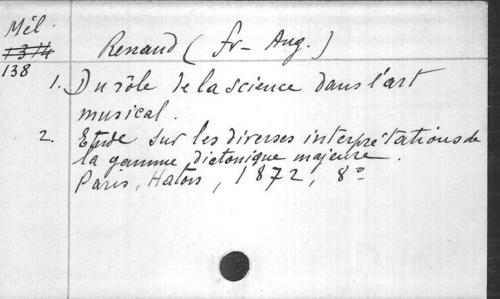 Mél.
1314
138
Renaud (fr- Aug.)
1. Du rôle de la science dans l'art
musical.
2. Etude sur les diverses interprétations de
la gamme diatonique majeure.
Paris, Hatois, 1872, 8º